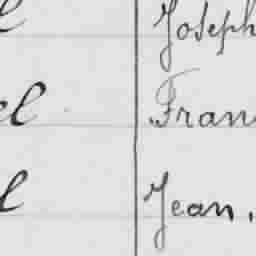 Joseph
el Fran
l Jean,